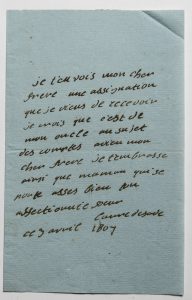 je t'en vois mon cher
frere une assignation
que je viens de recevoir
je crois que c'est de
mon oncle au sujet
des comptes adieu mon
cher frere je t'embrasse
ainsi que maman qui se
porte asses bien ton
affectionée sœur
Laure de sade
ce 3 avril 1807